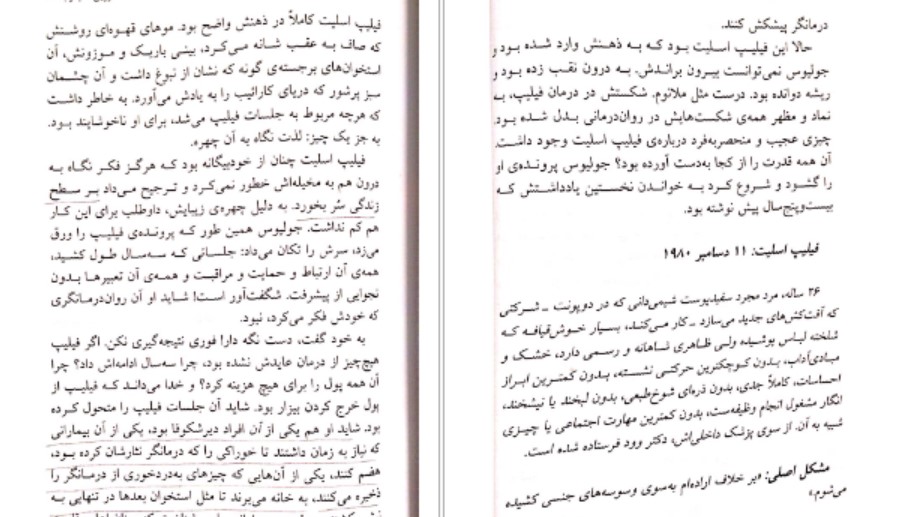 درمانگر پیشکش کنند.
حالا این فیلیپ اسلیت بود که به ذهنش وارد شده بود و
جولیوس نمی‌توانست بیرون براندش. به درون نقب زده بود و
ریشه دوانده بود. درست مثل ملانوم. شکستش در درمان فیلیپ، به
نماد و مظهر همه‌ی شکست‌هایش در روان‌درمانی بدل شده بود.
چیزی عجیب و منحصربه‌فرد درباره‌ی فیلیپ اسلیت وجود داشت.
آن همه قدرت را از کجا به‌دست آورده بود؟ جولیوس پرونده‌ی او
را گشود و شروع کرد به خواندن نخستین یادداشتش که
بیست‌وپنج‌سال پیش نوشته بود.
فیلیپ اسلیت: ۱۱ دسامبر ۱۹۸۰
۲۶ ساله، مرد مجرد سفیدپوست شیمی‌دانی که در دوپونت ـ شرکتی
که آفت‌کش‌های جدید می‌سازد ـ کار می‌کند، بسیار خوش‌قیافه که
شلخته لباس پوشیده ولی ظاهری شاهانه و رسمی دارد، خشک و
مبادی‌آداب، بدون کوچکترین حرکتی نشسته، بدون کمترین ابراز
احساسات، کاملاً جدی، بدون ذره‌ای شوخ‌طبعی، بدون لبخند یا نیشخند،
انگار مشغول انجام وظیفه‌ست، بدون کمترین مهارت اجتماعی یا چیزی
شبیه به آن. از سوی پزشک داخلی‌اش، دکتر وود فرستاده شده است.
مشکل اصلی: «بر خلاف اراده‌ام به‌سوی وسوسه‌های جنسی کشیده
می‌شوم.»
فیلیپ اسلیت کاملاً در ذهنش واضح بود. موهای قهوه‌ای روشنش
که صاف به عقب شانه می‌کرد، بینی باریک و موزونش، آن
استخوان‌های برجسته‌ی گونه که نشان از نبوغ داشت و آن چشمان
سبز پرشور که دریای کارائیب را به یادش می‌آورد. به خاطر داشت
که هرچه مربوط به جلسات فیلیپ می‌شد، برای او ناخوشایند بود.
به جز یک چیز: لذت نگاه به آن چهره.
فیلیپ اسلیت چنان از خودبیگانه بود که هرگز فکر نگاه به
درون هم به مخیله‌اش خطور نمی‌کرد و ترجیح می‌داد بر سطح
زندگی سُر بخورد. به دلیل چهره‌ی زیبایش، داوطلب برای این کار
هم کم نداشت. جولیوس همین طور که پرونده‌ی فیلیپ را ورق
می‌زد، سرش را تکان می‌داد: جلساتی که سه‌سال طول کشید،
همه‌ی آن ارتباط و حمایت و مراقبت و همه‌ی آن تعبیرها بدون
نجوایی از پیشرفت. شگفت‌آور است! شاید او آن روان‌درمانگری
که خودش فکر می‌کرد، نبود.
به خود گفت، دست نگه دار! فوری نتیجه‌گیری نکن. اگر فیلیپ
هیچ‌چیز از درمان عایدش نشده بود، چرا سه‌سال ادامه‌اش داد؟ چرا
آن همه پول را برای هیچ هزینه کرد؟ و خدا می‌داند که فیلیپ از
پول خرج کردن بیزار بود. شاید آن جلسات فیلیپ را متحول کرده
بود. شاید او هم یکی از آن افراد دیرشکوفا بود، یکی از آن بیمارانی
که نیاز به زمان داشتند تا خوراکی را که درمانگر نثارشان کرده بود،
هضم کنند، یکی از آن‌هایی که چیزهای به‌دردخوری از درمانگر را
ذخیره می‌کنند، به خانه می‌برند تا مثل استخوان بعدها در تنهایی به